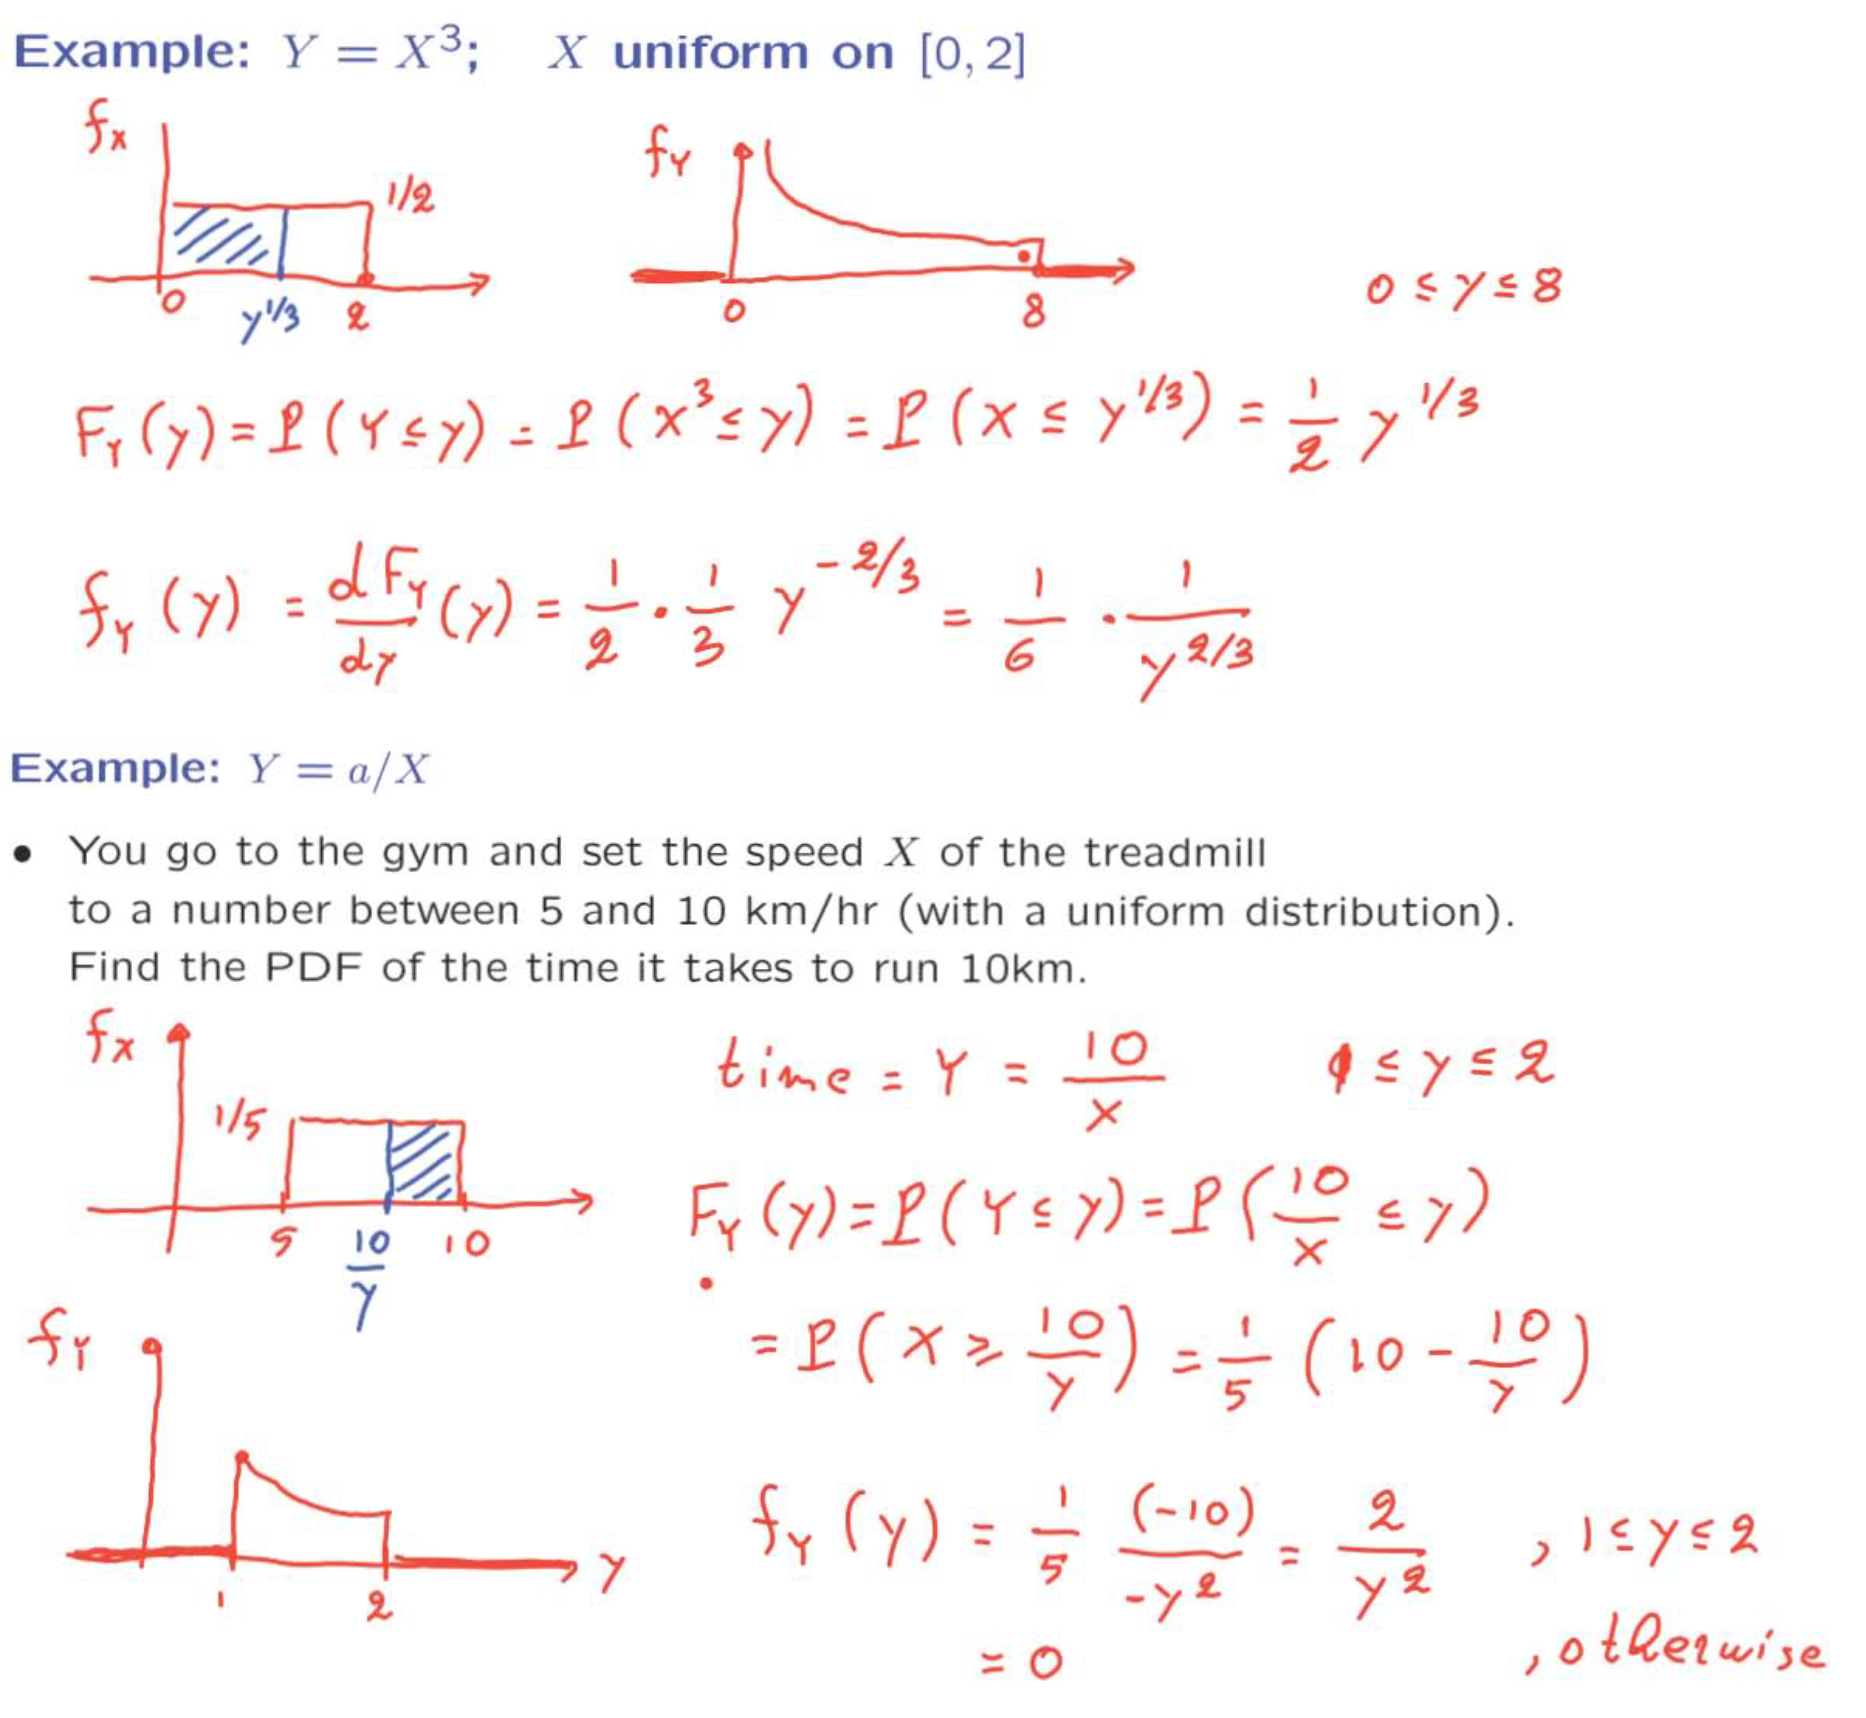 Example: Y = X³; X uniform on [0, 2]
f_X
1/2
0 y^{1/3} 2
f_Y
0 8
0 ≤ y ≤ 8
F_Y(y) = P(Y ≤ y) = P(X³ ≤ y) = P(X ≤ y^{1/3}) = 1/2 y^{1/3}
f_Y(y) = dF_Y/dy (y) = 1/2 · 1/3 y^{-2/3} = 1/6 · 1/y^{2/3}
Example: Y = a/X
• You go to the gym and set the speed X of the treadmill
to a number between 5 and 10 km/hr (with a uniform distribution).
Find the PDF of the time it takes to run 10km.
f_X
1/5
5 10/y 10
time = Y = 10/X 1 ≤ y ≤ 2
F_Y(y) = P(Y ≤ y) = P(10/X ≤ y)
= P(X ≥ 10/y) = 1/5 (10 - 10/y)
f_Y
1 2 y
f_Y(y) = 1/5 (-10)/-y² = 2/y² , 1 ≤ y ≤ 2
= 0 , otherwise